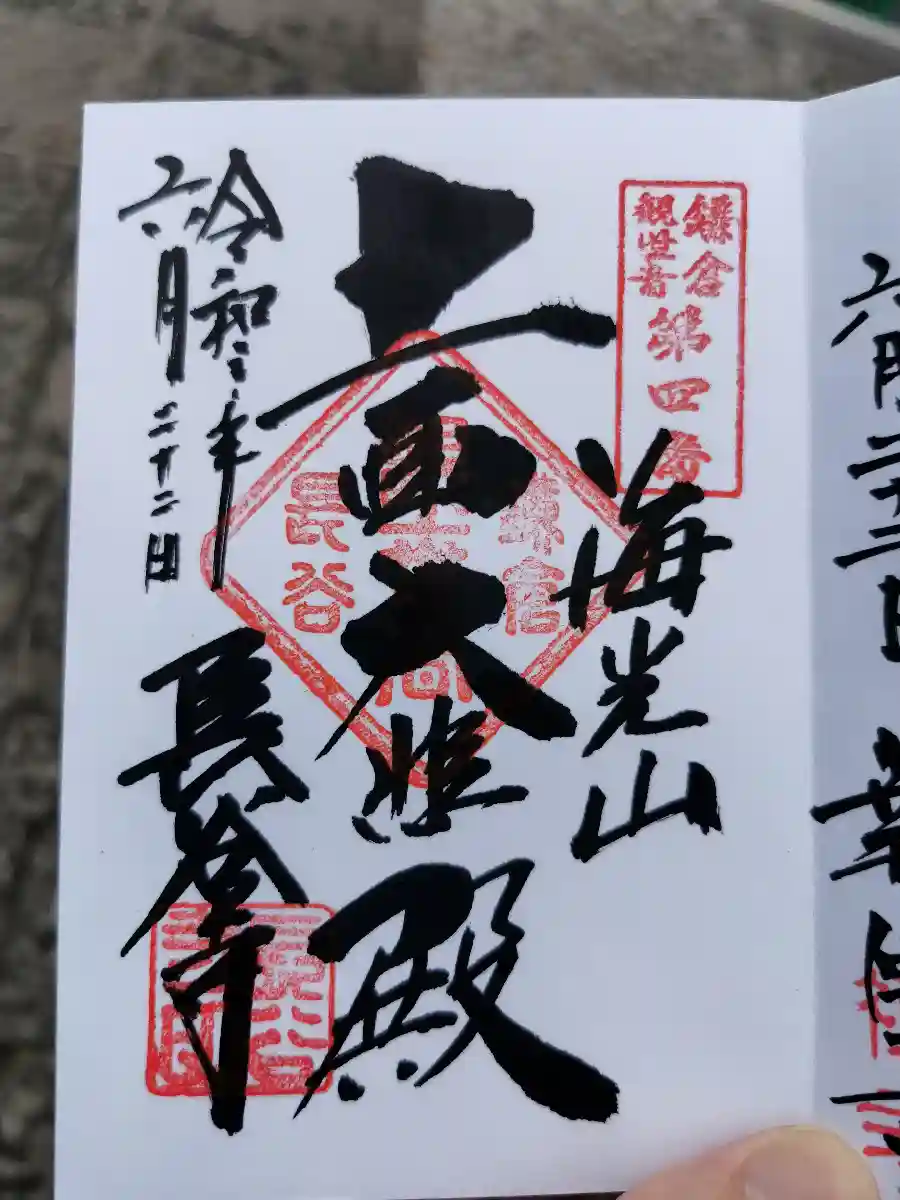 鎌倉
観世音
第四番
海光山
十一面大悲殿
鎌倉
長谷
令和二年
六月二十二日
長谷寺